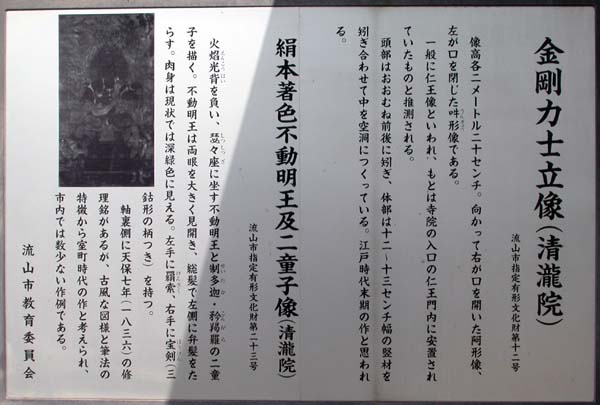 金剛力士立像（清瀧院）
流山市指定有形文化財第十二号
像高各二メートル二十センチ。向かって右が口を開いた阿形像、
左が口を閉じた吽形像である。
一般に仁王像といわれ、もとは寺院の入口の仁王門内に安置され
ていたものと推測される。
頭部はおおむね前後に矧ぎ、体部は十二〜十三センチ幅の竪材を
矧ぎ合わせて中を空洞につくっている。江戸時代末期の作と思われ
る。
絹本著色不動明王及二童子像（清瀧院）
流山市指定有形文化財第二十三号
火焔光背を負い、瑟々座に坐す不動明王と制多迦・矜羯羅の二童
子を描く。不動明王は両眼を大きく見開き、総髪で左側に弁髪をた
らす。肉身は現状では深緑色に見える。左手に羂索、右手に宝剣（三
鈷形の柄つき）を持つ。
軸裏側に天保七年（一八三六）の修
理銘があるが、古風な図様と筆法の
特徴から室町時代の作と考えられ、
市内では数少ない作例である。
流山市教育委員会